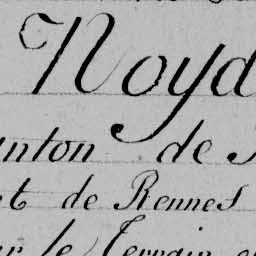 Noyd
anton de
t de Rennes
le Terrain